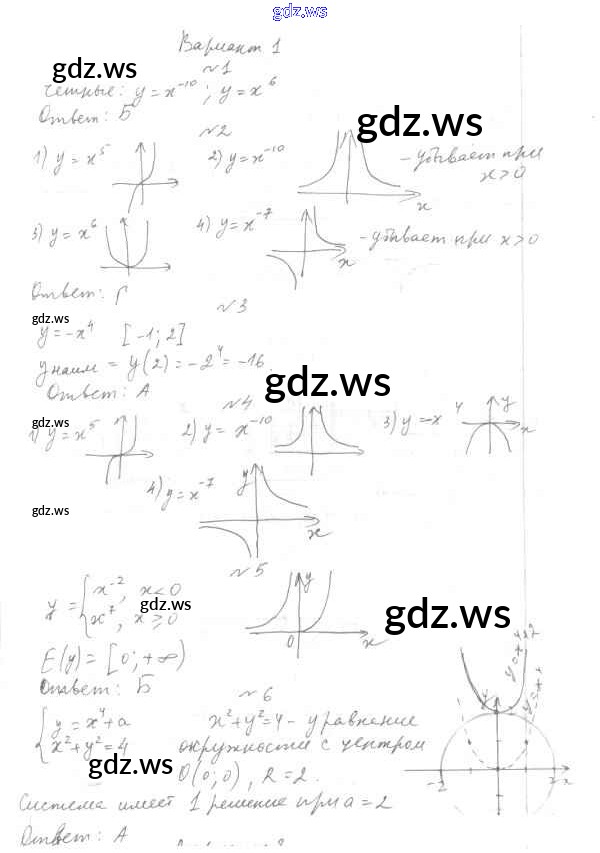 gdz.ws
Вариант 1
gdz.ws
№1
Четные: y = x⁻¹⁰; y = x⁶
Ответ: Б
gdz.ws
№2
1) y = x⁵ 2) y = x⁻¹⁰ x - убывает при x>0
3) y = x⁶ 4) y = x⁻⁷ x - убывает при x>0
Ответ: Г
gdz.ws
№3
y = -x⁴ [-1; 2]
y наим = y(2) = -2⁴ = -16.
Ответ: А
gdz.ws
№4
gdz.ws
1) y = x⁵ 2) y = x⁻¹⁰ 3) y = -x⁴ y x
4) y = x⁻⁷ y x
gdz.ws
№5
y = { x⁻², x < 0
x⁷, x ≥ 0
y 0 x
gdz.ws
gdz.ws
E(y) = [0; +∞)
Ответ: Б
№6
{ y = x⁴ + a
x² + y² = 4
x² + y² = 4 - уравнение
окружности с центром
O(0; 0), R = 2.
gdz.ws
y = x⁴+2
y = x⁴
y
-2 2 x
Система имеет 1 решение при a = 2
Ответ: А